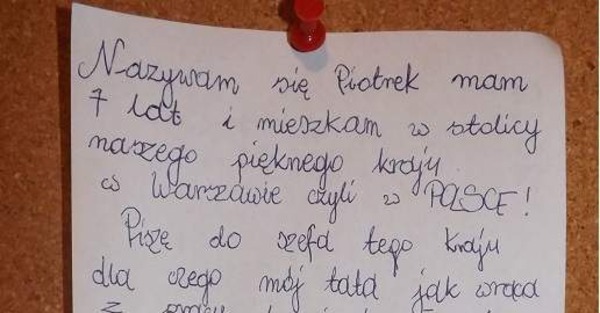 Nazywam się Piotrek mam
7 lat i mieszkam w stolicy
naszego pięknego kraju
w Warszawie czyli w POLSCE!
Piszę do szefa tego kraju
dla czego mój tata jak wraca
z pracy